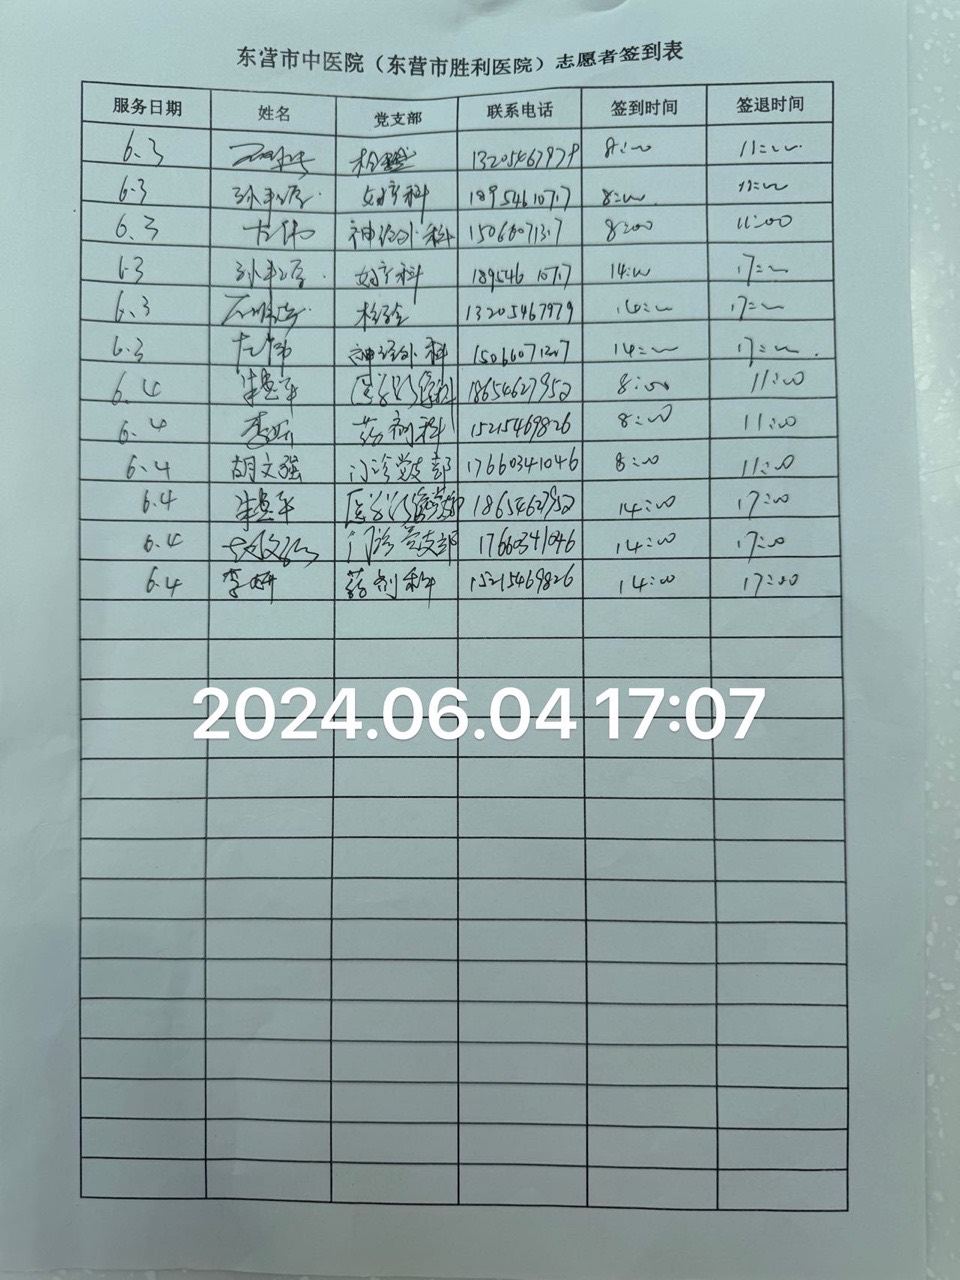 东营市中医院（东营市胜利医院）志愿者签到表
服务日期 姓名 党支部 联系电话 签到时间 签退时间
6.3 检验 13205467979 8:00 11:00
6.3 孙 妇产科 18954610717 8:00 11:00
6.3 左伟 神经外科 15066071317 8:00 11:00
6.3 孙 妇产科 18954610717 14:00 17:00
6.3 检验 13205467979 14:00 17:00
6.3 左伟 神经外科 14:00 17:00
6.4 朱 18654627952 8:00 11:00
6.4 李妍 药剂科 15215469826 8:00 11:00
6.4 胡文强 门诊党支部 17660341046 8:00 11:00
6.4 朱 18654627952 14:00 17:00
6.4 胡文强 门诊党支部 17660341046 14:00 17:00
6.4 李妍 药剂科 15215469826 14:00 17:00
2024.06.04 17:07